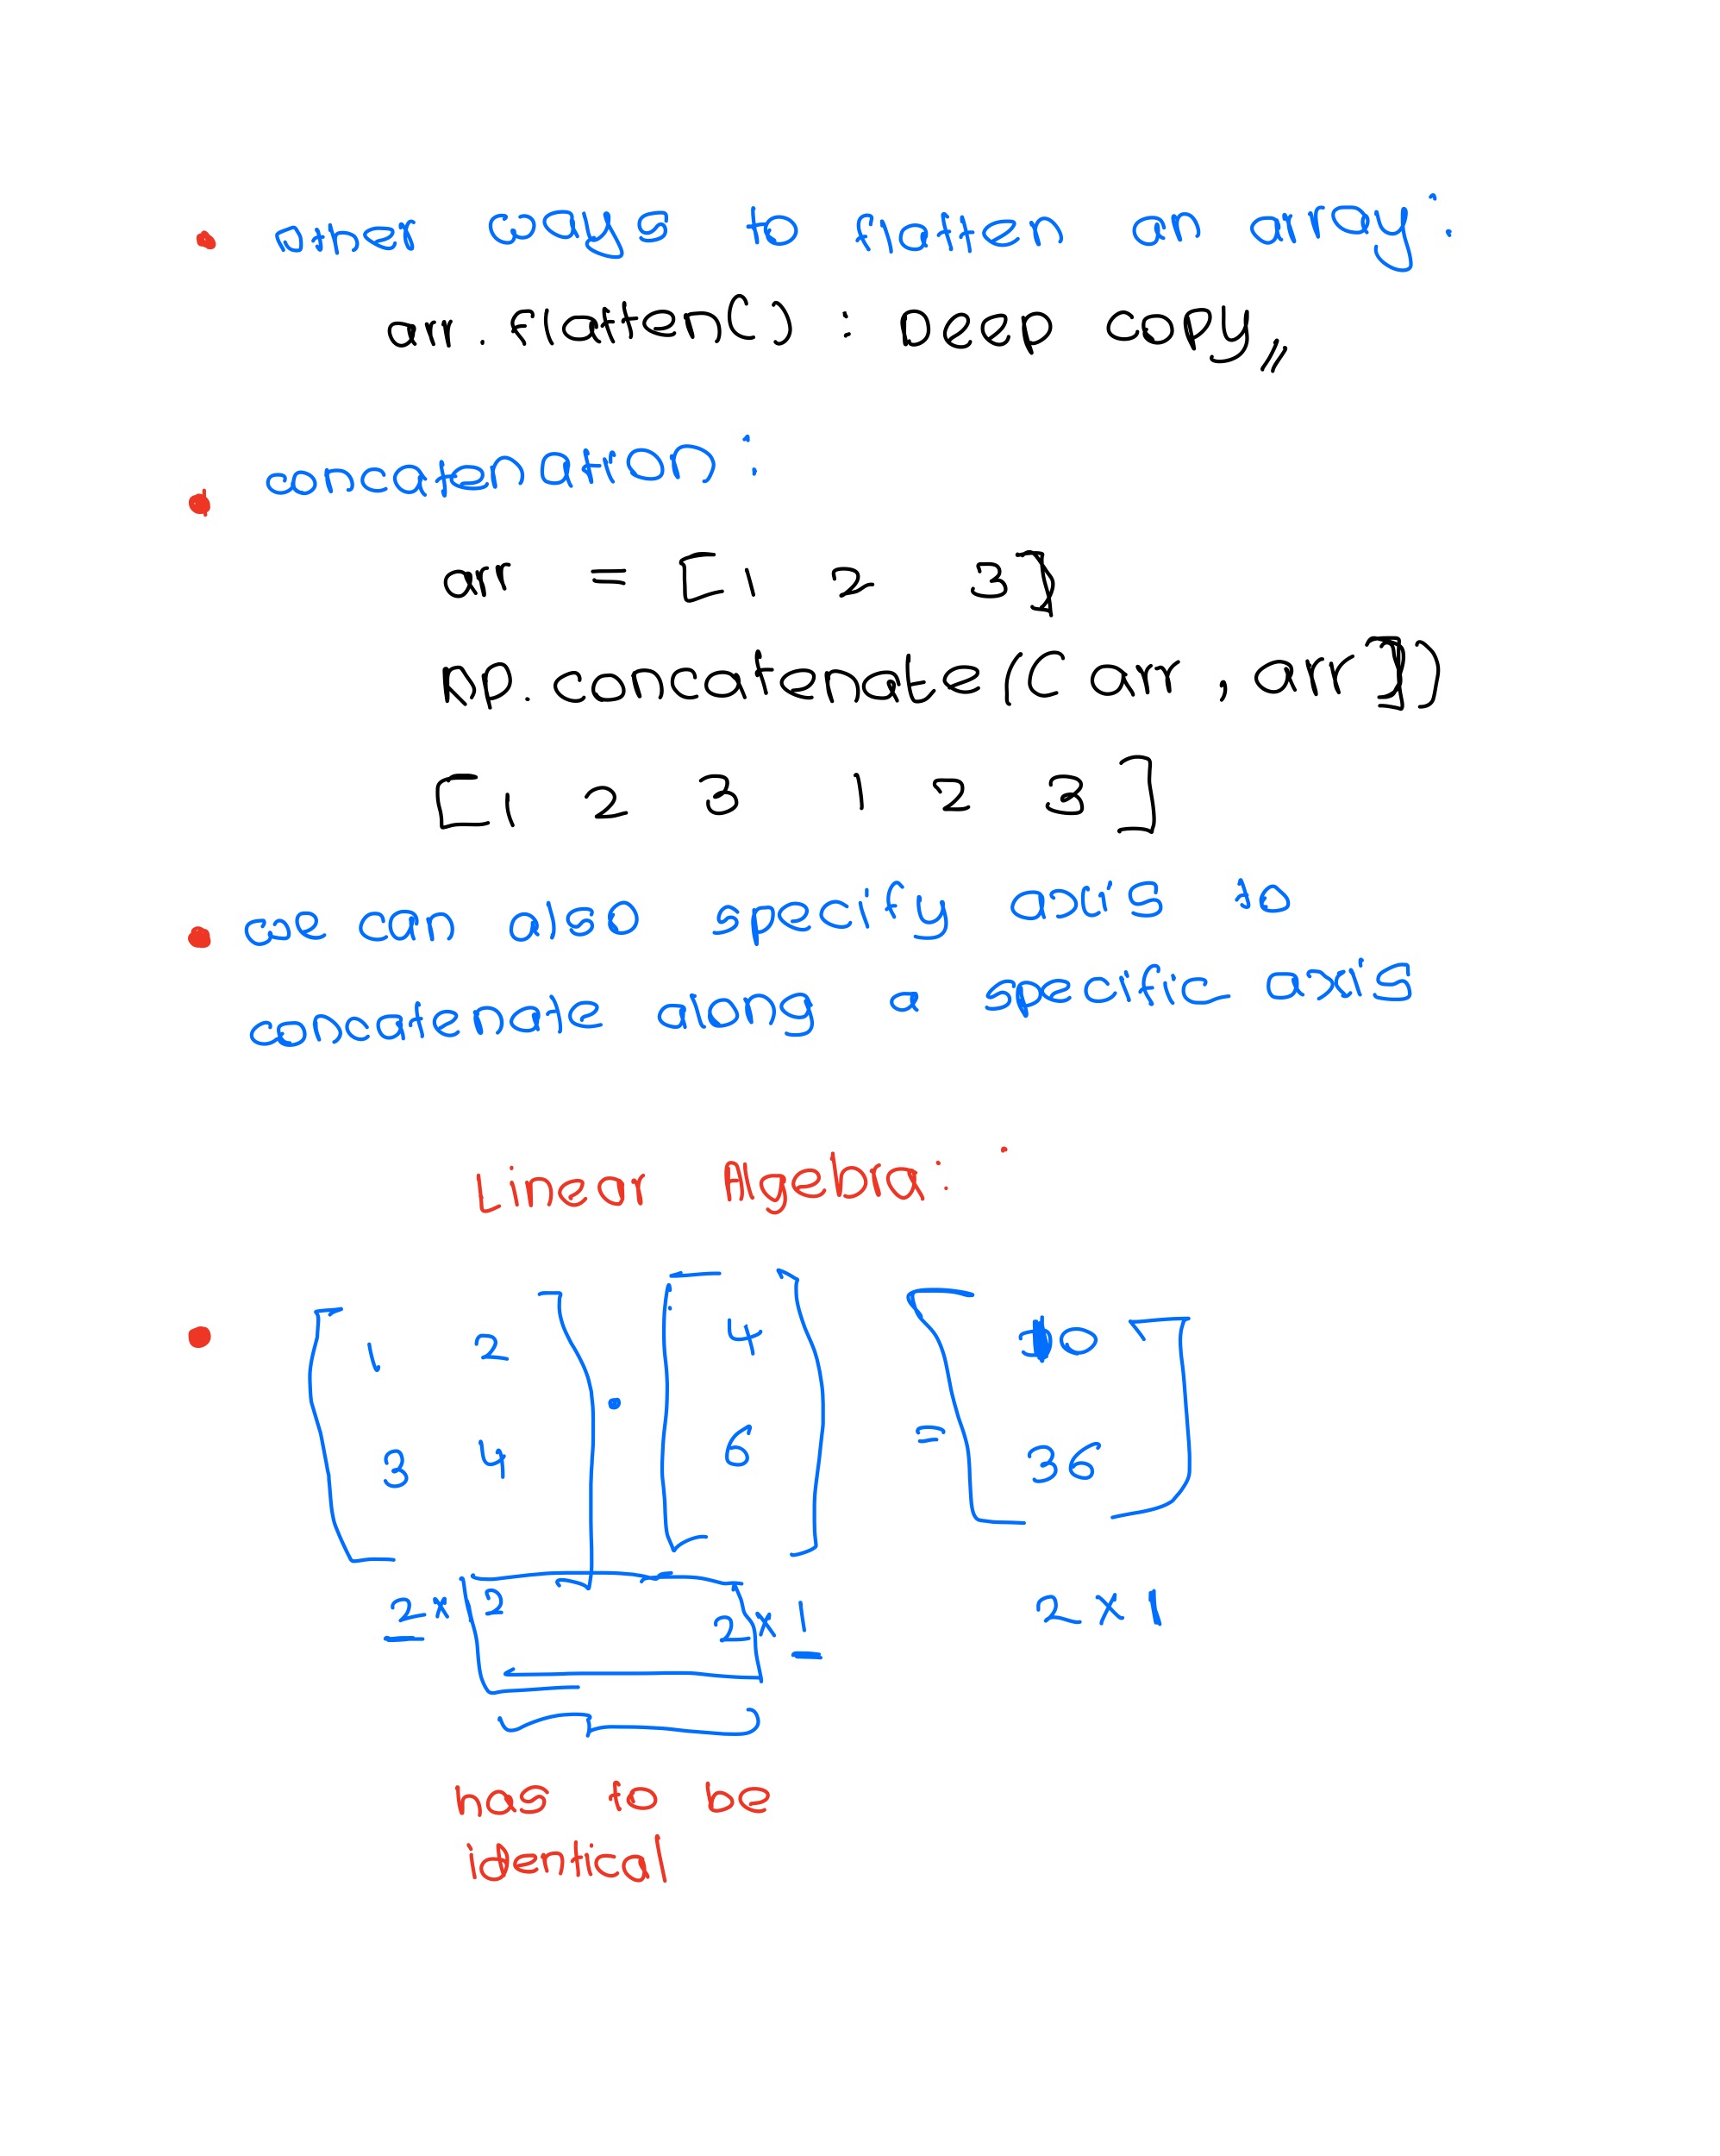 • other ways to flatten an array:
arr.flatten() : Deep copy,,
• concatenation:
arr = [1 2 3]
np.concatenate([arr, arr])
[1 2 3 1 2 3]
• we can also specify axis to
concatenate along a specific axis
Linear Algebra:
• 1 2 4
3 4 • 6 = 36
2 x 2 2 x 1 2 x 1
has to be
identical